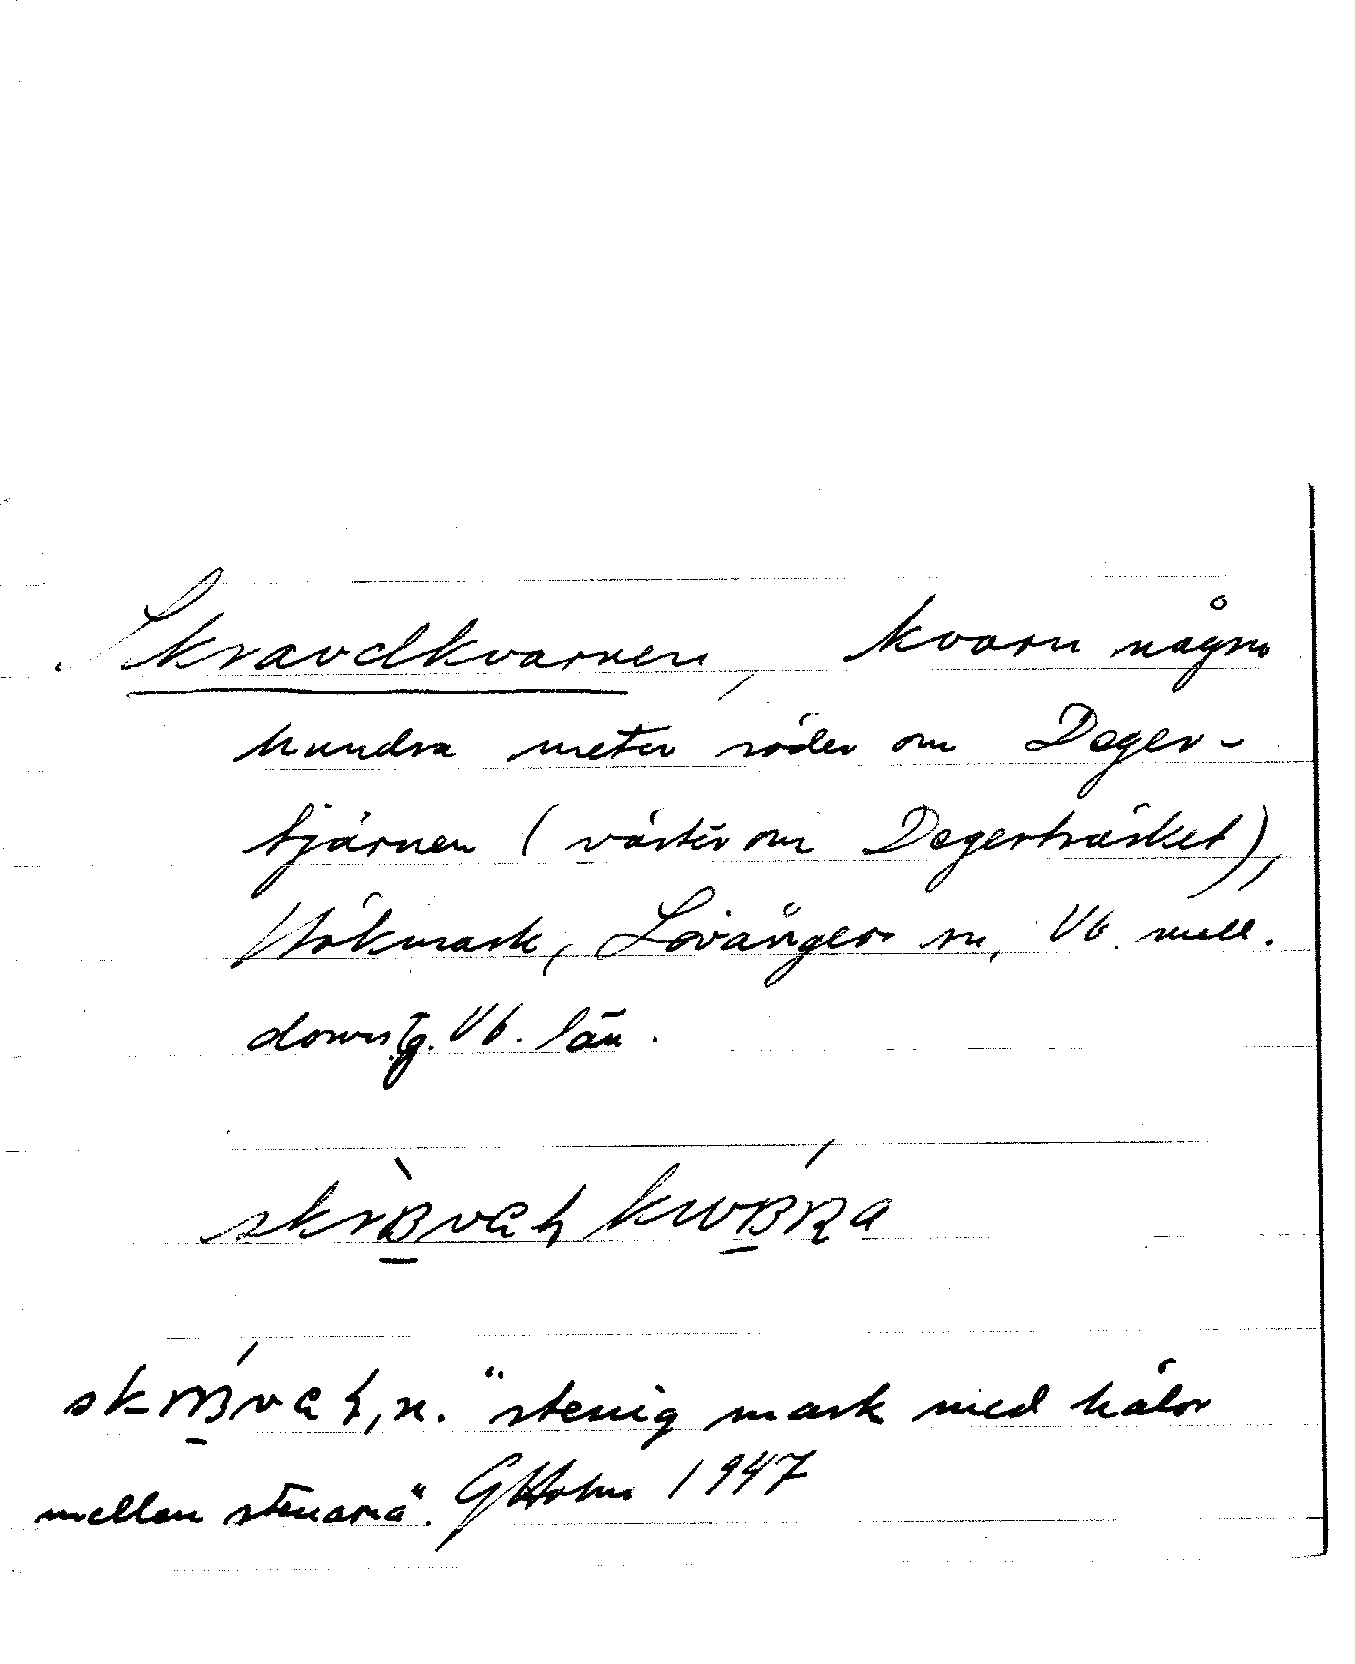 Skravelkvarnen, kvarn några
hundra meter söder om Deger-
tjärnen (väster om Degerträsket),
Hökmark, Lövånger sn, Vb. mell.
domstg. Vb. län.
stenig mark med hålor
mellan stenarna". GHolm 1947